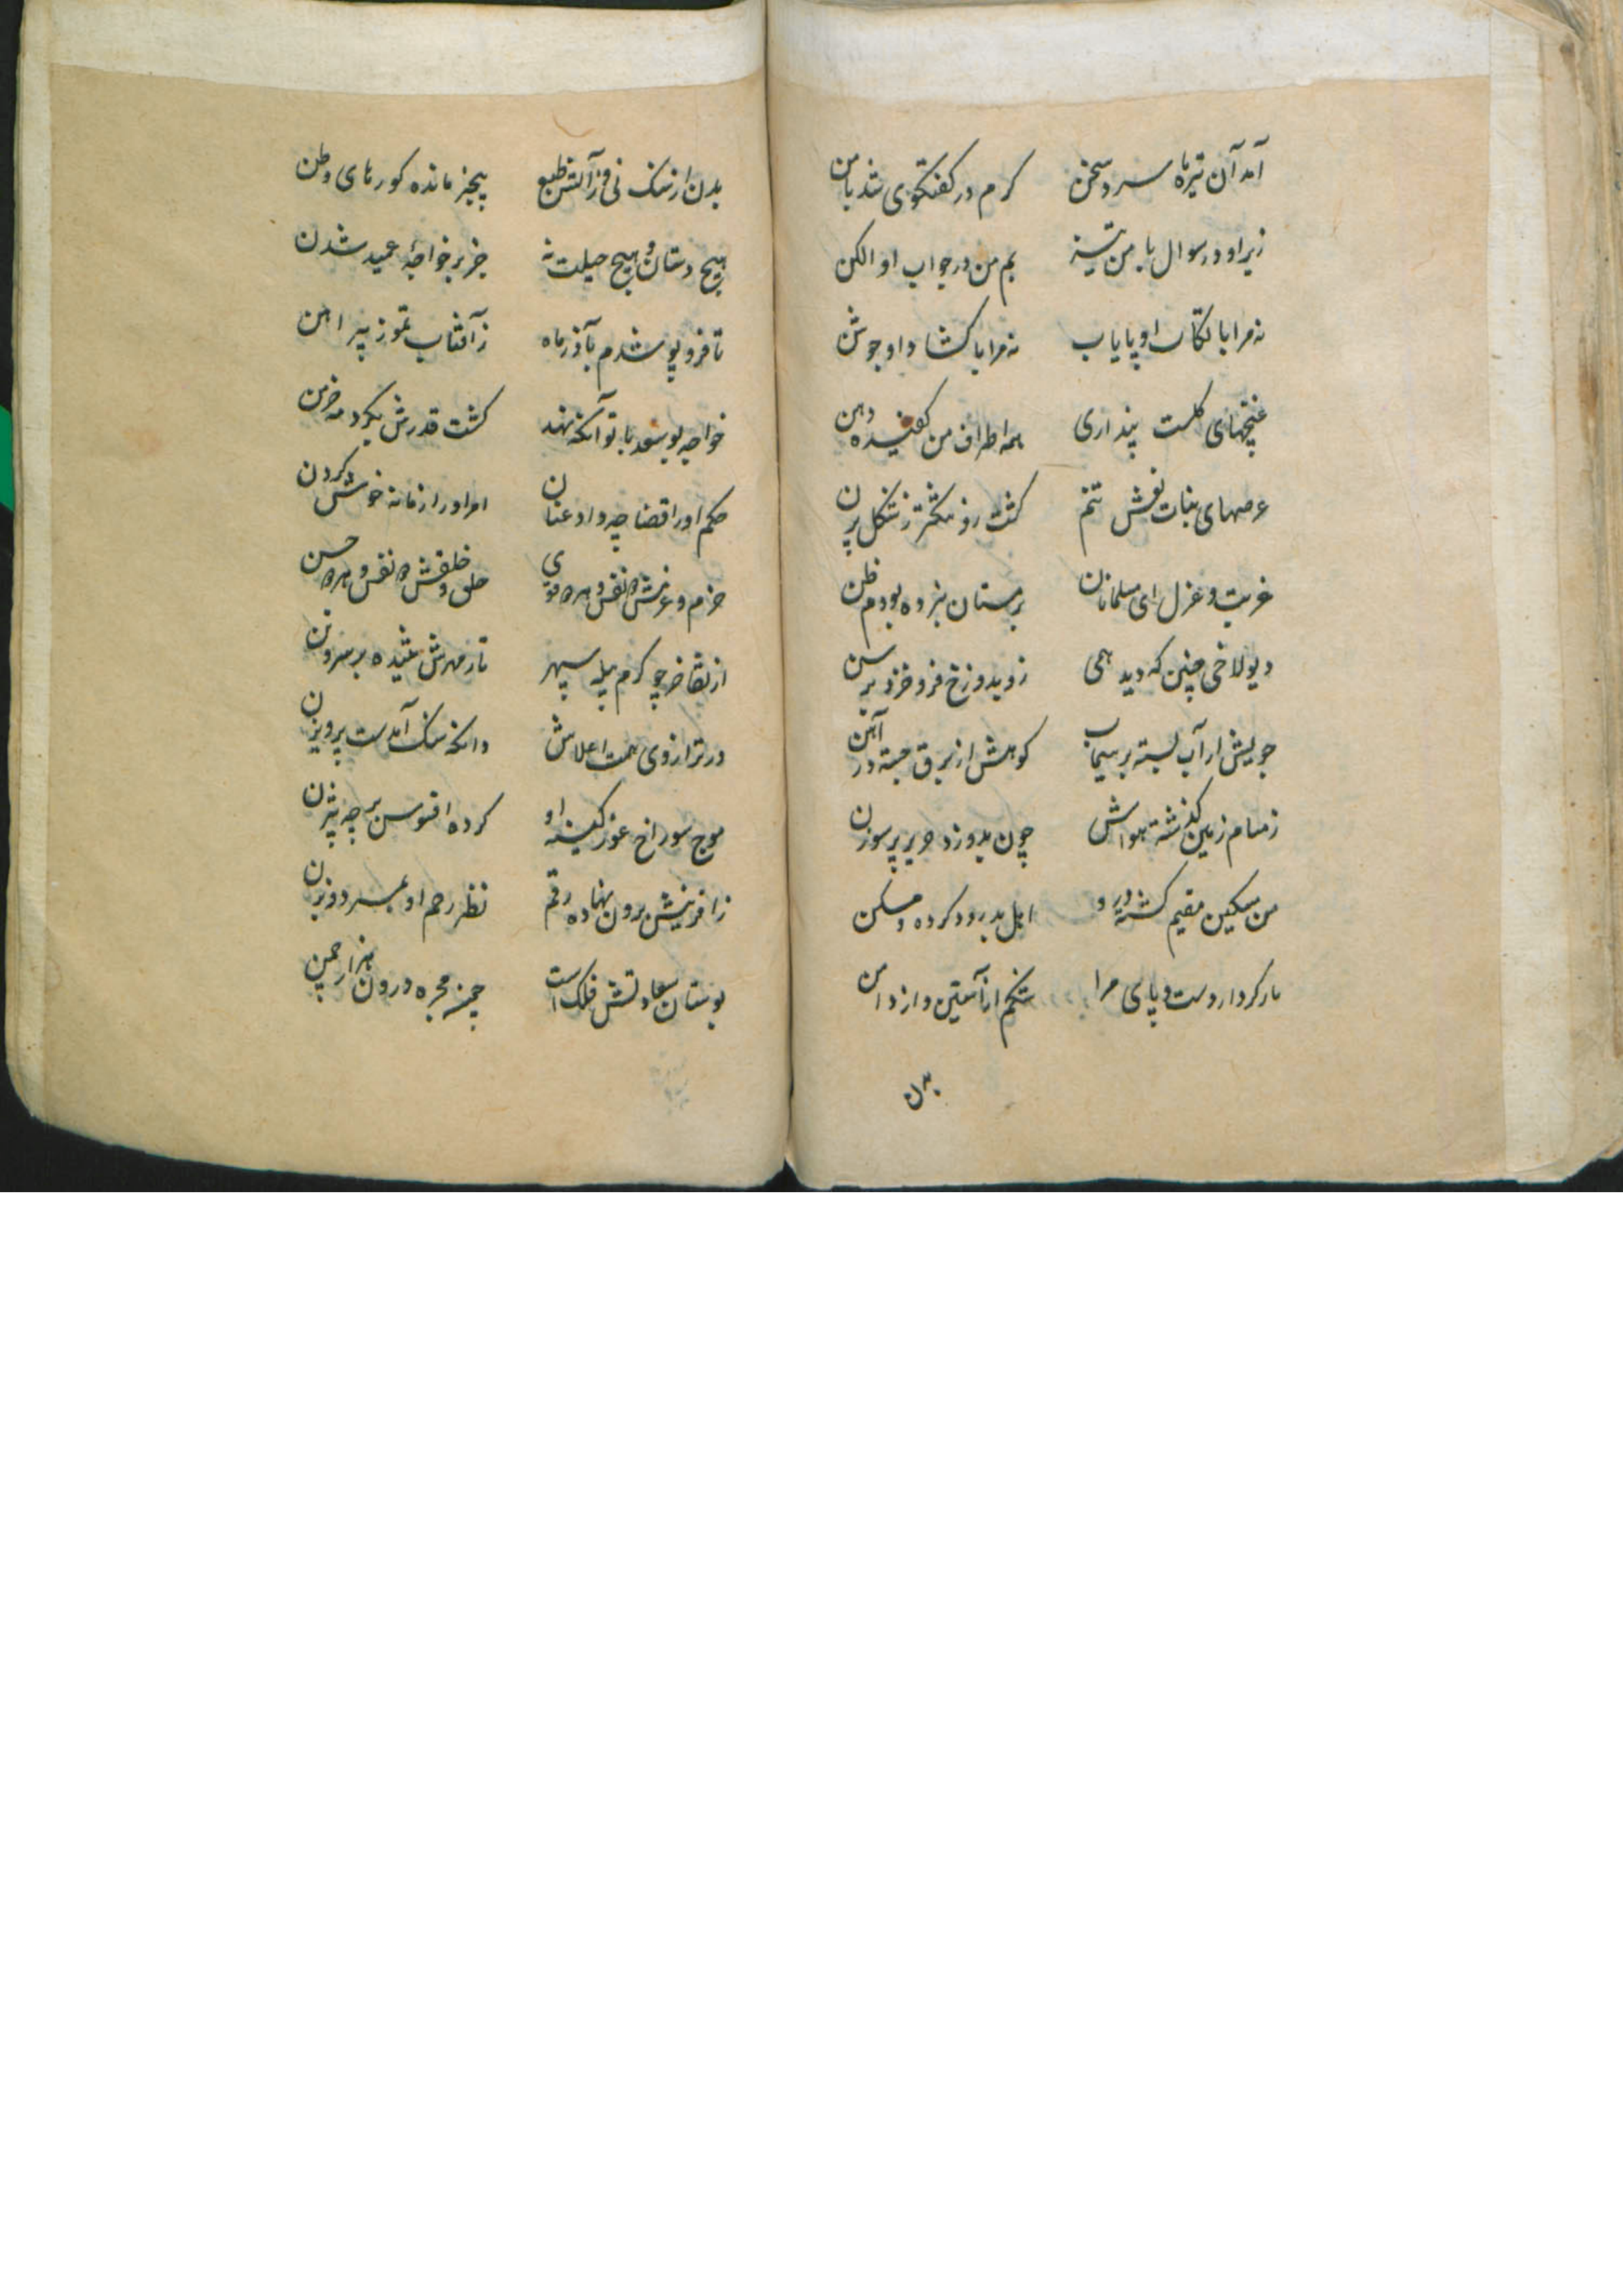 آمد آن تیرماه سرد سخن گرم در کفتکوی شد با من
زیر او در سوال با من تیز بم من در جواب او الکن
نه مرا با لکات او پایاب نه مرا با کشاد او جوشن
غنچهای کلست پنداری همه اطراف من کفیده دهن
عرصهای بنات نعش تنم کشت روز شکل پرن
غربت و عزل ای مسلمانان برمستان نبرده بودم ظن
دیولاخی چنین که دید همی زو بدوزخ فرو خزد برسن
جویش از آب بسته بر سیماب کوهش از برق جسته در آهن
زمسام زمین گذشته هواش چون بدوزد حریر بر سوزن
من مسکین مقیم کشته درو اهل بدرود کرده و مسکن
بار کرد از دست و پای مرا شکم از آستین و از دامن
بدن
بدن از سنک نی و ز آتش طبع پنجبر مانده کورهای وطن
هیچ دستان و هیچ حیلت نه جز بر خواجهٔ عمید شدن
تا فرو پوشدم بآذرماه ز آفتاب تموز پیراهن
خواجه بوسعد با تو آنکه نهند کشت قدرش بکرد مه خرمن
حکم او را قضا چه داد عنان امر او را زمانه خوش کردن
حزم و عزمش نفس و هر قوی خلق و خلقش نفس و هر حسن
از تفاخر چو کرم پیله سپهر تار مهرش تنیده بر سر و تن
در ترازوی همت اعلاش دانکه سنک آمدست پرویزن
موج سوراخ غور کینه او کرده افسوس بر چه بیژن
ز آفرینش برون نهاده رقم نظر رحم او بمرد و بزن
بوستان سعادتش فلک است چشمه مجره درون هزار چمن